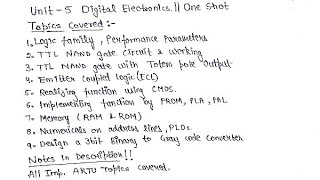 Unit-5 Digital Electronics.|| One Shot
Topics Covered:-
1. Logic family, Performance Parameters
2. TTL NAND gate circuit & working
3. TTL NAND gate with Totem pole Output
4. Emitter coupled logic (ECL)
5. Realizing function using CMOS.
6. Implementing function by PROM, PLA, PAL
7. Memory (RAM & ROM)
8. Numericals on address lines, PLDs
9. Design a 3bit Binary to Gray code converter
Notes in Description!!
All Imp. AKTU Topics covered.